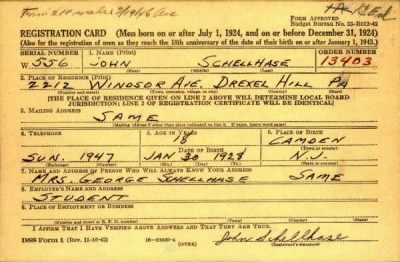 Form 210 mailed 2/19/46
FORM APPROVED
Budget Bureau No. 33-R012-42
REGISTRATION CARD—(Men born on or after July 1, 1924, and on or before December 31, 1924)
(Also for the registration of men as they reach the 18th anniversary of the date of their birth on or after January 1, 1943.)
SERIAL NUMBER 1. NAME (Print) ORDER NUMBER
W 556 JOHN SCHELLHASE 13403
(First) (Middle) (Last)
2. PLACE OF RESIDENCE (Print)
2212 WINDSOR DREXEL HILL PA
(Number and street) (Town, township, village, or city) (County) (State)
[THE PLACE OF RESIDENCE GIVEN ON LINE 2 ABOVE WILL DETERMINE LOCAL BOARD
JURISDICTION; LINE 2 OF REGISTRATION CERTIFICATE WILL BE IDENTICAL]
3. MAILING ADDRESS
SAME
(Mailing address if other than place indicated on line 2. If same, insert word same)
4. TELEPHONE 5. AGE IN YEARS 6. PLACE OF BIRTH
18 CAMDEN
DATE OF BIRTH
SUN. 1947 JAN 30 1928 N.J.
(Exchange) (Number) (Mo.) (Day) (Yr.) (State or country)
7. NAME AND ADDRESS OF PERSON WHO WILL ALWAYS KNOW YOUR ADDRESS
MRS. GEORGE SCHELLHASE SAME
8. EMPLOYER'S NAME AND ADDRESS
STUDENT
9. PLACE OF EMPLOYMENT OR BUSINESS
(Number and street or R. F. D. number) (Town) (County) (State)
I AFFIRM THAT I HAVE VERIFIED ABOVE ANSWERS AND THAT THEY ARE TRUE.
DSS Form 1 (Rev. 11-16-42) (OVER) John Schellhase